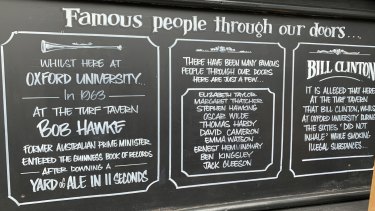 Famous people through our doors...
WHILST HERE AT
OXFORD UNIVERSITY...
In 1963
AT THE TURF TAVERN
BOB HAWKE
FORMER AUSTRALIAN PRIME MINISTER,
ENTERED THE GUINNESS BOOK OF RECORDS
AFTER DOWNING A
YARD OF ALE IN 11 SECONDS
THERE HAVE BEEN MANY FAMOUS
PEOPLE THROUGH OUR DOORS
HERE ARE JUST A FEW...
ELIZABETH TAYLOR
MARGARET THATCHER
STEPHEN HAWKING
OSCAR WILDE
THOMAS HARDY
DAVID CAMERON
EMMA WATSON
ERNEST HEMINGWAY
BEN KINGSLEY
JACK GLEESON
BILL CLINTON
IT IS ALLEGED THAT HERE
AT THE TURF TAVERN
THAT BILL CLINTON, WHILST
AT OXFORD UNIVERSITY DURING
THE SIXTIES, "DID NOT
INHALE" WHILE SMOKING
ILLEGAL SUBSTANCES...